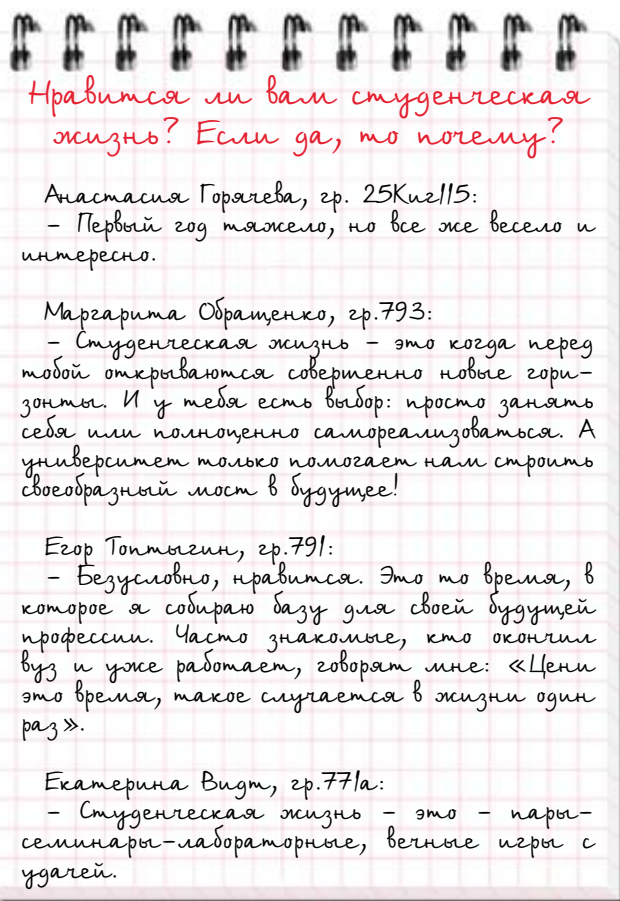 Нравится ли вам студенческая
жизнь? Если да, то почему?
Анастасия Горячева, гр. 25Киг115:
– Первый год тяжело, но все же весело и
интересно.
Маргарита Обращенко, гр.793:
– Студенческая жизнь – это когда перед
тобой открываются совершенно новые гори-
зонты. И у тебя есть выбор: просто занять
себя или полноценно самореализоваться. А
университет только помогает нам строить
своеобразный мост в будущее!
Егор Топтыгин, гр.791:
– Безусловно, нравится. Это то время, в
которое я собираю базу для своей будущей
профессии. Часто знакомые, кто окончил
вуз и уже работает, говорят мне: «Цени
это время, такое случается в жизни один
раз».
Екатерина Видт, гр.771а:
– Студенческая жизнь – это – пары-
семинары-лабораторные, вечные игры с
удачей.